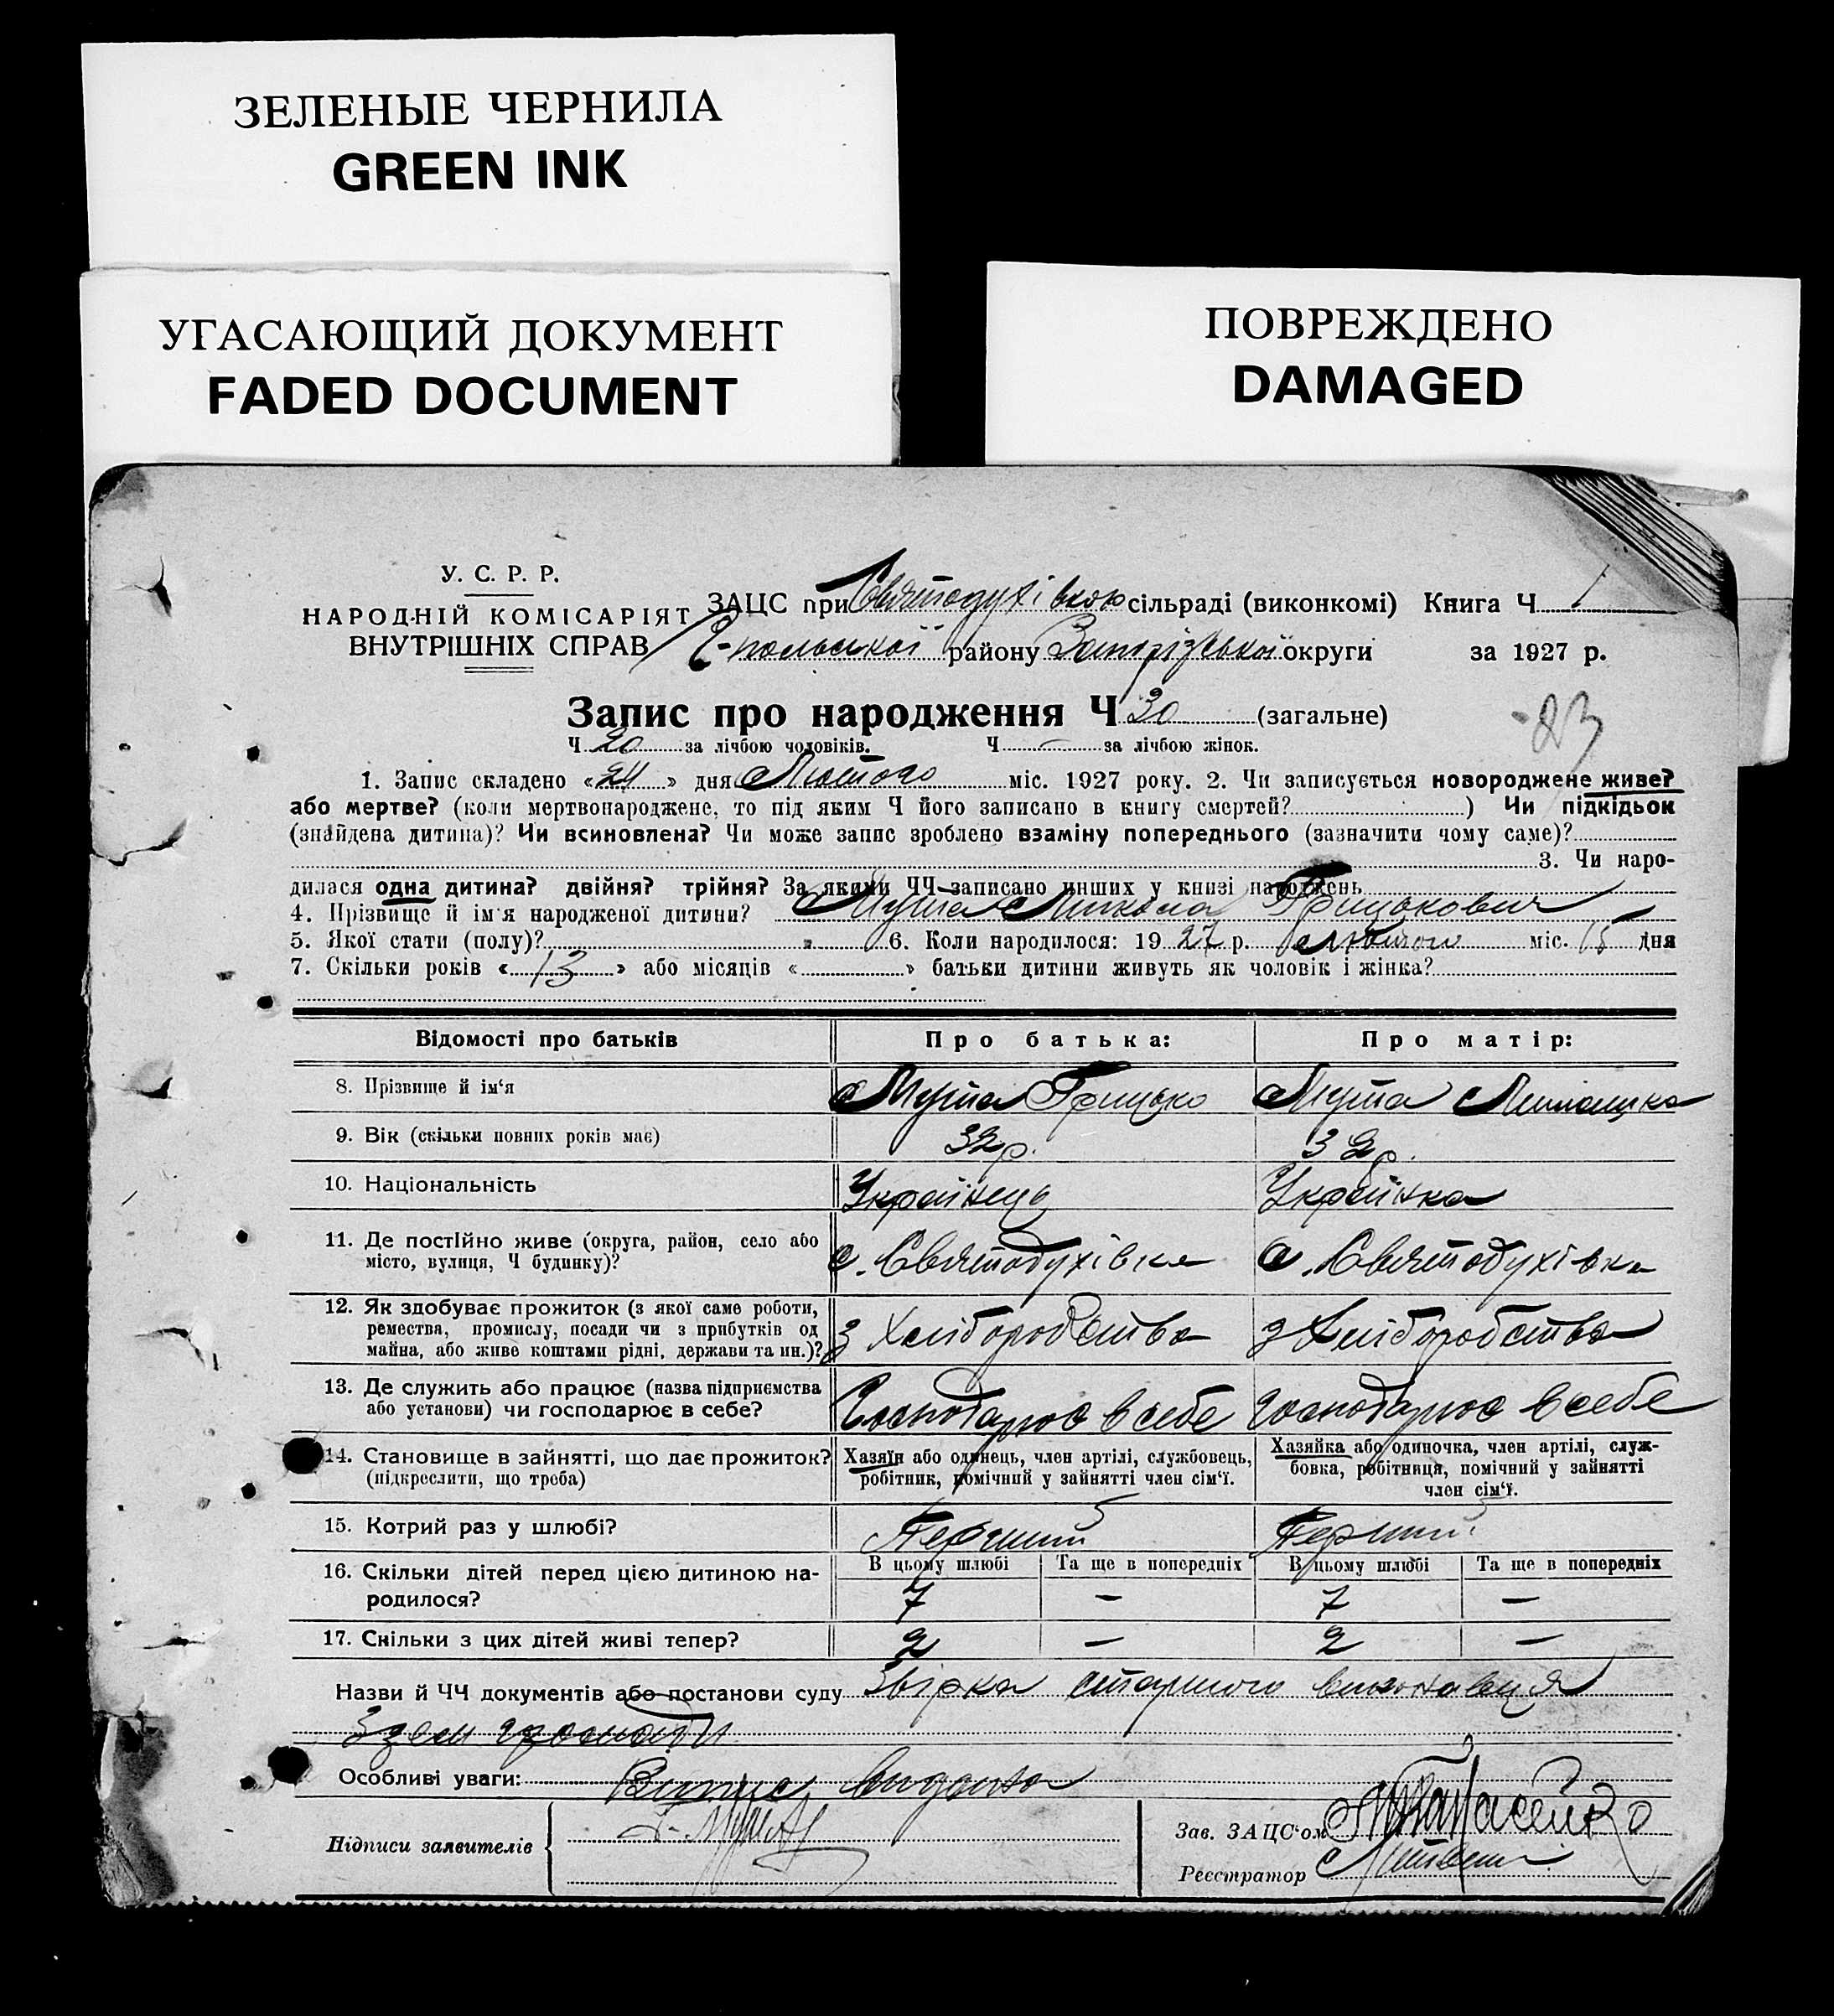 ЗЕЛЕНЫЕ ЧЕРНИЛА
GREEN INK
УГАСАЮЩИЙ ДОКУМЕНТ
FADED DOCUMENT
ПОВРЕЖДЕНО
DAMAGED
У. С. Р. Р.
НАРОДНІЙ КОМІСАРІЯТ
ВНУТРІШНІХ СПРАВ
ЗАЦС при Святодухівкою сільраді (виконкомі) Книга Ч 1
району Запорізької округи за 1927 р.
Запис про народження Ч 30 (загальне)
23
Ч 20 за лічбою чоловіків. Ч — за лічбою жінок.
1. Запис складено «24» дня Лютого міс. 1927 року. 2. Чи записується новороджене живе?
або мертве? (коли мертвонароджене, то під яким Ч його записано в книгу смертей? ) Чи підкідьок
(знайдена дитина)? Чи всиновлена? Чи може запис зроблено взаміну попереднього (зазначити чому саме)?
3. Чи наро-
дилася одна дитина? двійня? трійня? За якими ЧЧ записано инших у книзі народжень
4. Прізвище й ім'я народженої дитини? Мута Микола Грицькович
5. Якої стати (полу)? „ 6. Коли народилося: 1927 р. Лютого міс. 15 дня
7. Скільки років «13» або місяців « » батьки дитини живуть як чоловік і жінка?
Відомості про батьків Про батька: Про матір:
8. Прізвище й ім'я Мута Грицько Мута
9. Вік (скільки повних років має) 32 р. 32 р.
10. Національність Українець Українка
11. Де постійно живе (округа, район, село або
місто, вулиця, Ч будинку)? с. Святодухівка с. Святодухівка
12. Як здобуває прожиток (з якої саме роботи,
ремества, промислу, посади чи з прибутків од
майна, або живе коштами рідні, держави та ин.)? З Хліборобства З Хліборобства
13. Де служить або працює (назва підприємства
або установи) чи господарює в себе? Господарює в себе Господарює в себе
14. Становище в зайнятті, що дає прожиток?
(підкреслити, що треба)
Хазяїн або одинець, член артілі, службовець,
робітник, помічний у зайнятті член сім'ї.
Хазяйка або одиночка, член артілі, служ-
бовка, робітниця, помічний у зайнятті
член сім'ї.
15. Котрий раз у шлюбі? Перший Перший
16. Скільки дітей перед цією дитиною на-
родилося?
В цьому шлюбі Та ще в попередніх В цьому шлюбі Та ще в попередніх
7 — 7 —
17. Скільки з цих дітей живі тепер? 2 — 2 —
Назви й ЧЧ документів або постанови суду Звірка старшого виконавця
Ззем громади
Особливі уваги: Випис видано
Підписи заявителів
Зав. ЗАЦС'ом
Реєстратор